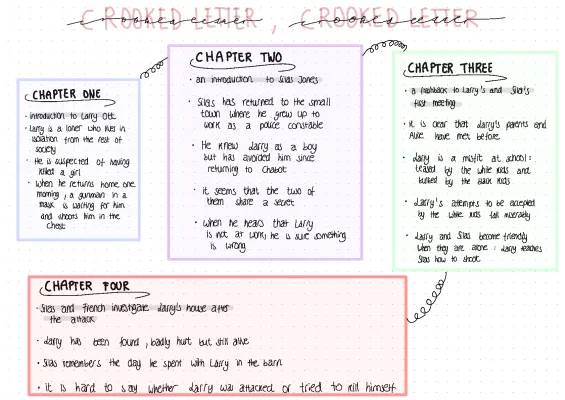 CROOKED LETTER, CROOKED LETTER
CHAPTER ONE
• introduction to Larry Ott
• Larry is a loner who lives in
isolation from the rest of
society
• He is suspected of having
killed a girl
• when he returns home one
morning, a gunman in a
mask is waiting for him
and shoots him in the
chest
CHAPTER TWO
• an introduction to Silas Jones
• Silas has returned to the small
town where he grew up to
work as a police constable
• He knew Larry as a boy
but has avoided him since
returning to Chabot
• it seems that the two of
them share a secret
• when he hears that Larry
is not at work, he is sure something
is wrong
CHAPTER THREE
• a flashback to Larry's and Silas's
first meeting
• it is clear that Larry's parents and
Alice have met before
• Larry is a misfit at school:
teased by the white kids and
bullied by the black kids
• Larry's attempts to be accepted
by the white kids fail miserably
• Larry and Silas become friendly
when they are alone: Larry teaches
Silas how to shoot
CHAPTER FOUR
• Silas and French investigate Larry's house after
the attack
• Larry has been found, badly hurt but still alive
• Silas remembers the day he spent with Larry in the barn
• it is hard to say whether Larry was attacked or tried to kill himself